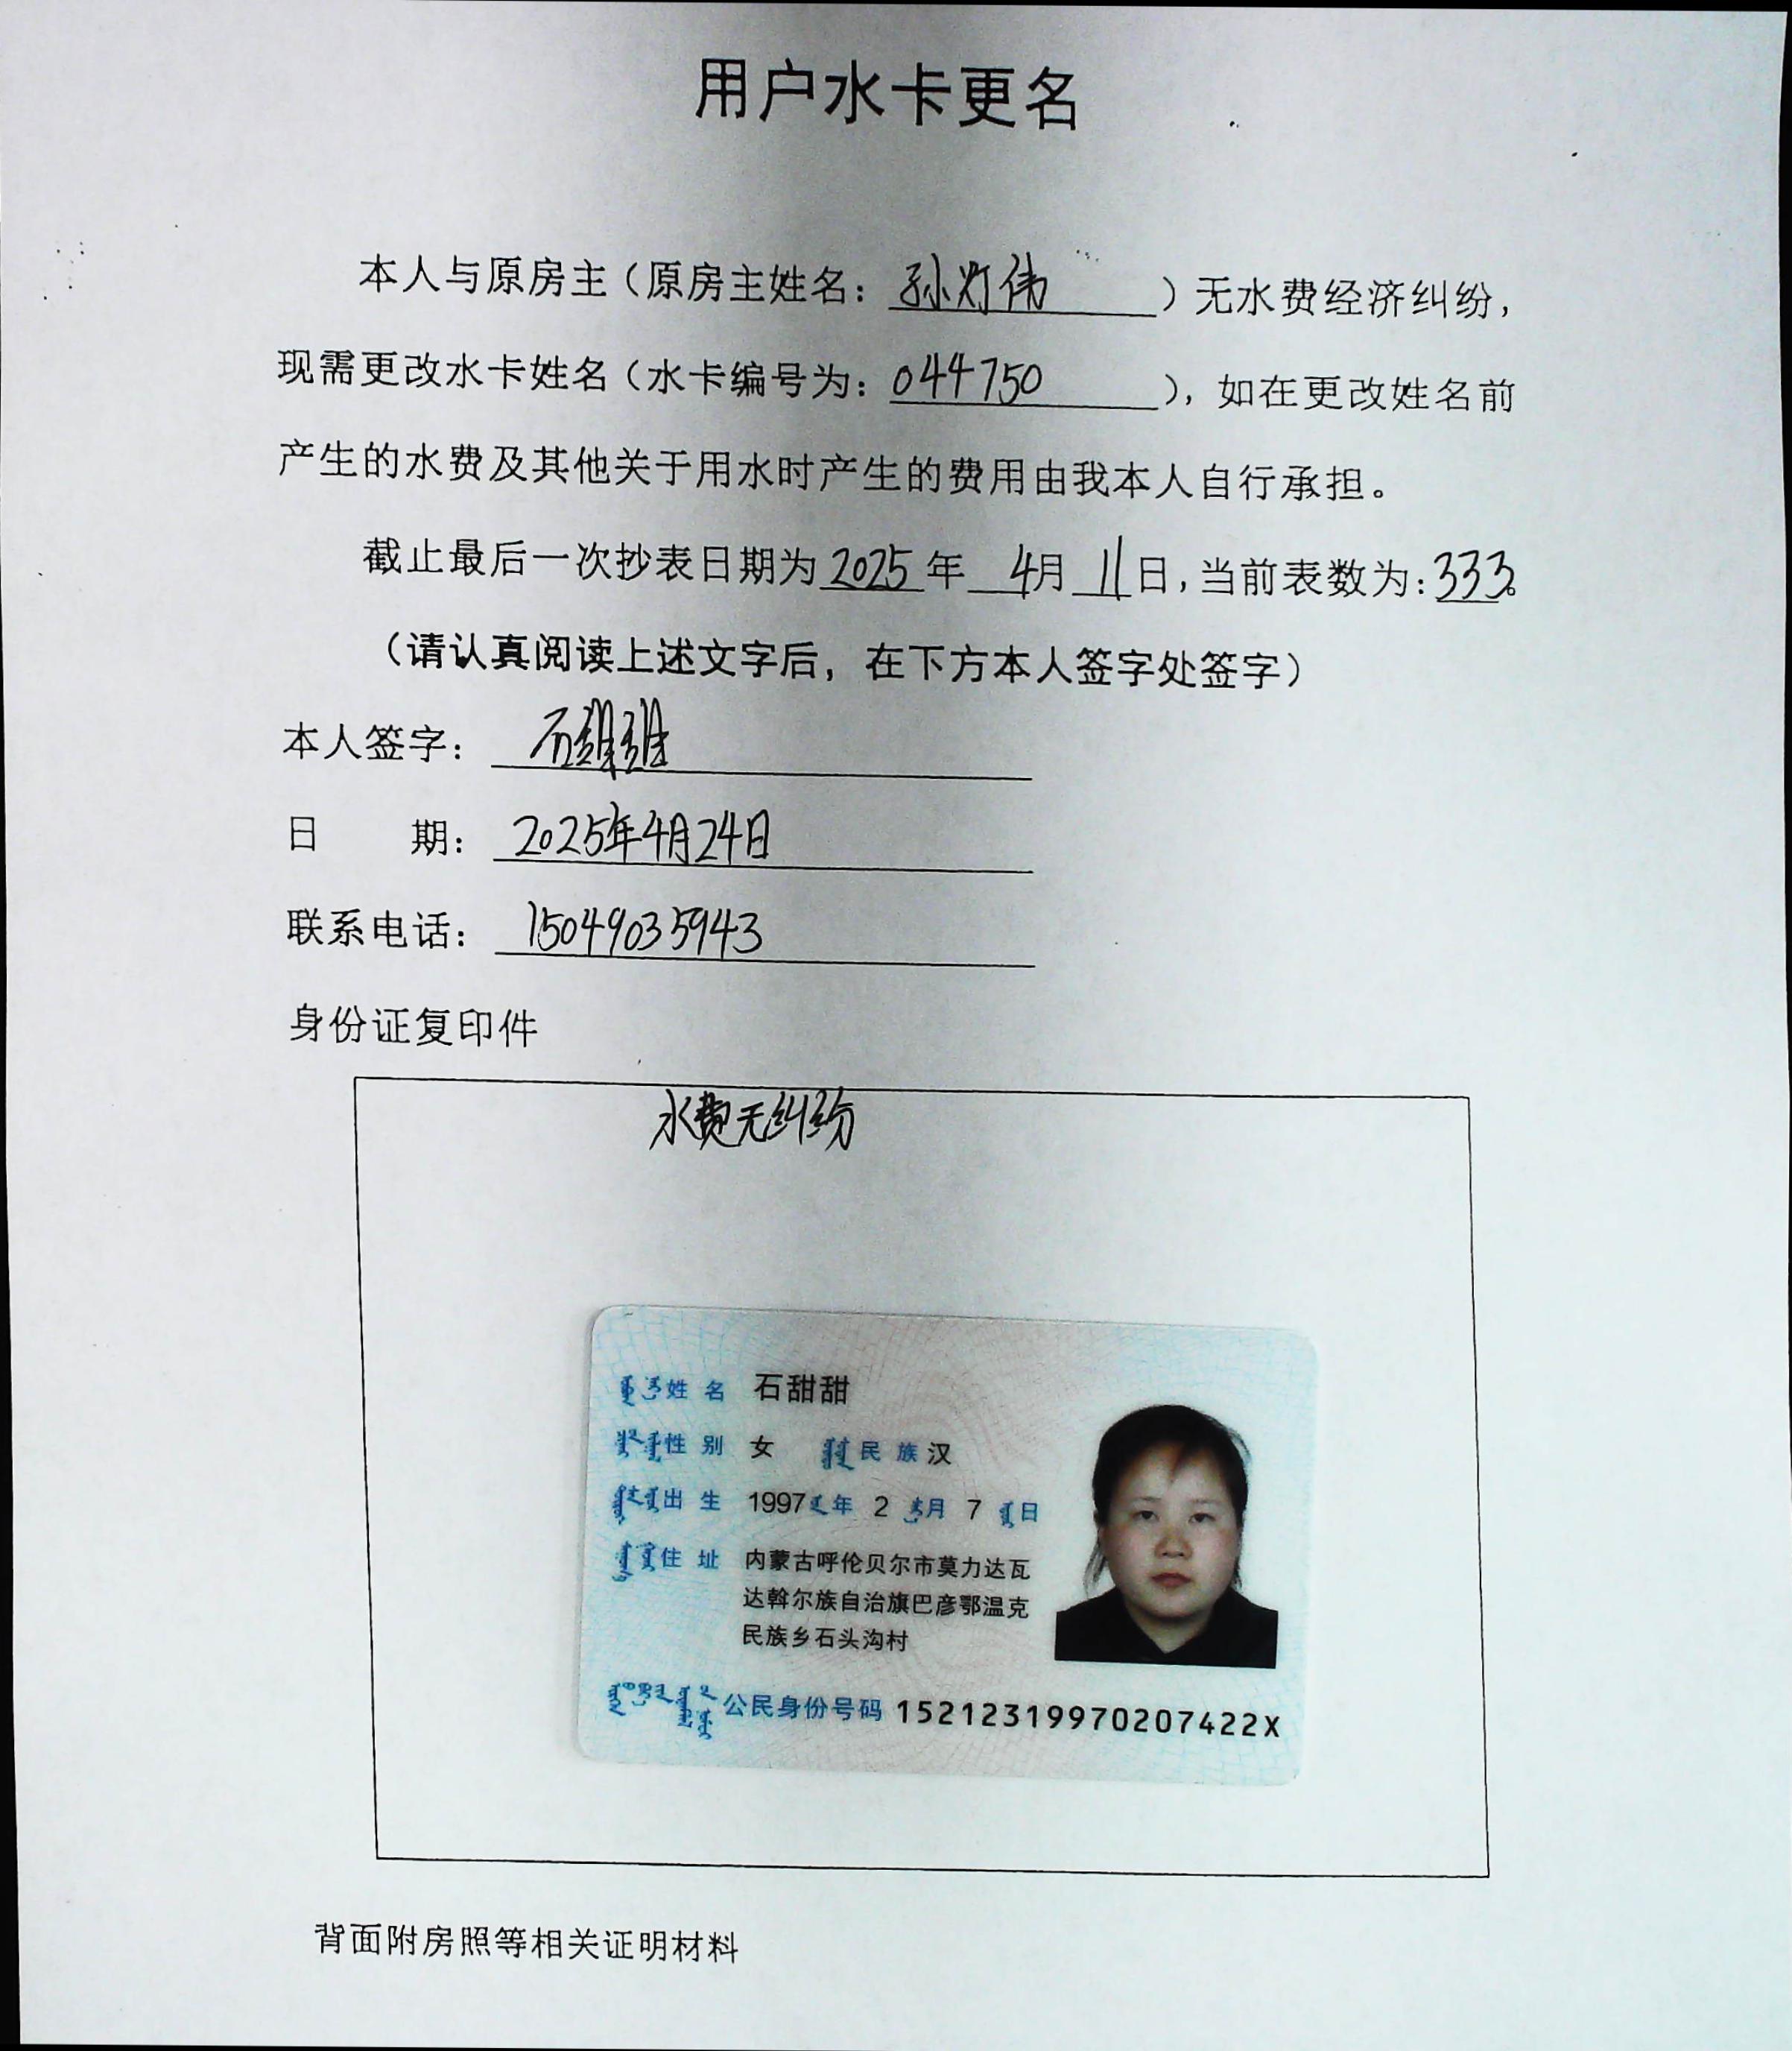 用户水卡更名
本人与原房主（原房主姓名：孙灯伟）无水费经济纠纷，
现需更改水卡姓名（水卡编号为：044750），如在更改姓名前
产生的水费及其他关于用水时产生的费用由我本人自行承担。
截止最后一次抄表日期为2025年 4月11日，当前表数为：333。
（请认真阅读上述文字后，在下方本人签字处签字）
本人签字：石
日 期：2025年4月24日
联系电话：15049035943
身份证复印件
水费无纠纷
姓名 石甜甜
性别 女 民族 汉
出生 1997年 2月 7日
住址 内蒙古呼伦贝尔市莫力达瓦
达斡尔族自治旗巴彦鄂温克
民族乡石头沟村
公民身份号码 15212319970207422X
背面附房照等相关证明材料